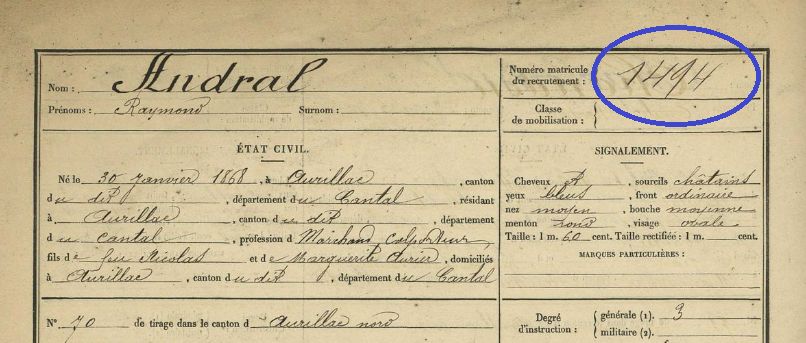 Nom : Andral
Prénoms : Raymond Surnom :
Numéro matricule
du recrutement : 1494
Classe
de mobilisation :
ÉTAT CIVIL.
Né le 30 Janvier 1868, à Aurillac, canton
du dit, département du Cantal, résidant
à Aurillac, canton du dit, département
du Cantal, profession d Marchand, colporteur,
fils de feu Nicolas et de Marguerite, domiciliés
à Aurillac, canton du dit, département du Cantal
N° 70 de tirage dans le canton d Aurillac nord
SIGNALEMENT.
Cheveux, sourcils châtains
yeux bleus, front ordinaire
nez moyen, bouche moyenne
menton rond, visage ovale
Taille : 1 m. 60 cent. Taille rectifiée : 1 m. cent.
MARQUES PARTICULIÈRES :
Degré
d'instruction :
générale (1). 3
militaire (2).